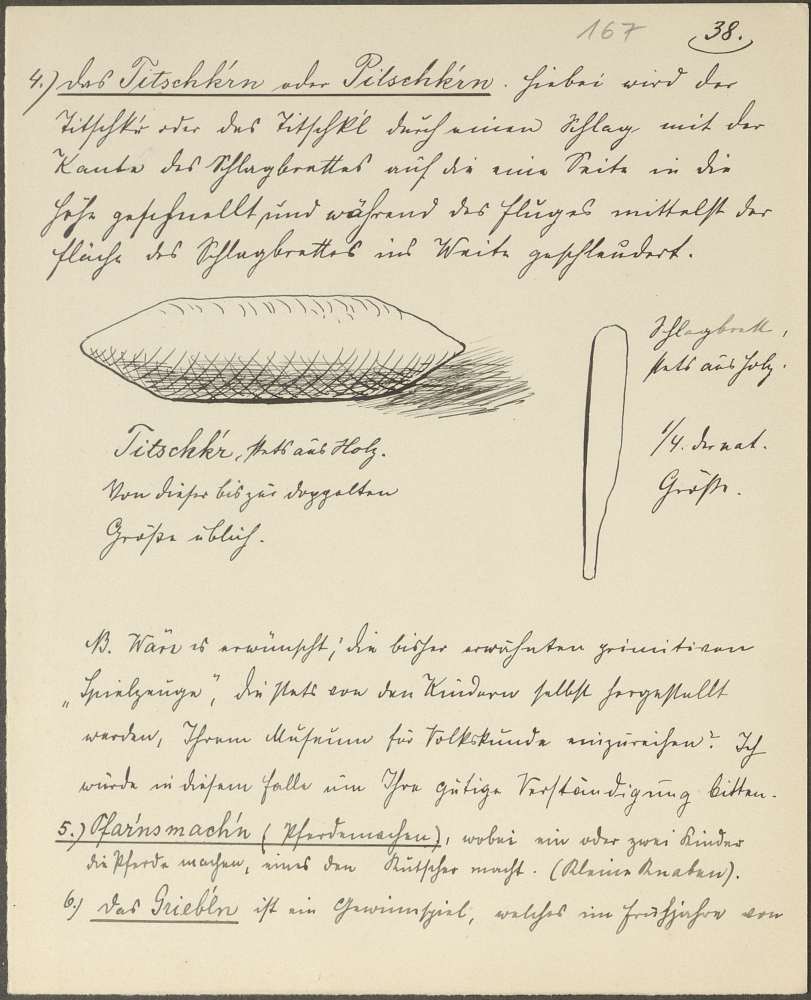 167 38.
4.) Das Titschkérn oder Pitschkérn. Hiebei wird der
Titschk'r oder das Titschk'l durch einen Schlag mit der
Kante des Schlagbrettes auf die eine Seite in die
Höhe geschnellt und während des Fluges mittelst der
Fläche des Schlagbrettes ins Weite geschleudert.
Schlagbrett,
stets aus Holz.
1/4. der nat.
Größe.
Titschk'r, stets aus Holz.
Von dieser bis zur doppelten
Größe üblich.
NB. Wäre es erwünscht, die bisher erwähnten primitiven
„Spielzeuge“, die stets von den Kindern selbst hergestellt
werden, Ihrem Museum für Volkskunde einzureihen? Ich
würde in diesem Falle um Ihre gütige Verständigung bitten.
5.) Pfar'nsmach'n (Pferdemachen), wobei ein oder zwei Kinder
die Pferde machen, eines den Kutscher macht. (Kleine Knaben).
6.) Das Grieb'ln ist ein Gewinnspiel, welches im Frühjahre von